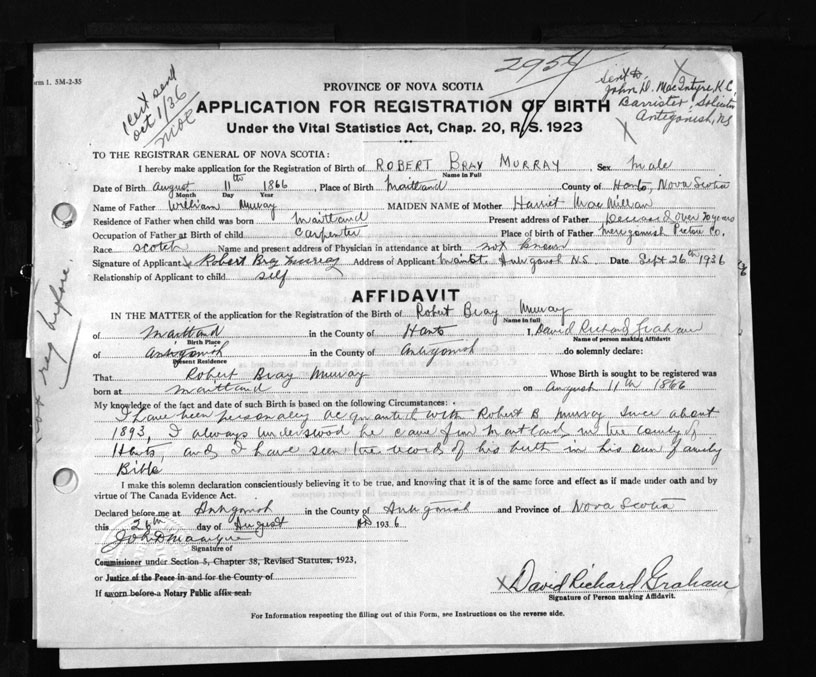 orm 1. 5M-2-35
2954
Cert send
Oct 1/36
MOC
sent to
John D. MacIntyre K.C.
Barrister, Solicitor
Antigonish, NS
PROVINCE OF NOVA SCOTIA
APPLICATION FOR REGISTRATION OF BIRTH
Under the Vital Statistics Act, Chap. 20, R.S. 1923
TO THE REGISTRAR GENERAL OF NOVA SCOTIA:
I hereby make application for the Registration of Birth of ROBERT BRAY MURRAY Sex Male
Name in Full
Date of Birth August 11th 1866, Place of Birth Maitland County of Hants, Nova Scotia
Month Day Year
Name of Father William Murray MAIDEN NAME of Mother Harriet MacMillan
Residence of Father when child was born Maitland Present address of Father Deceased over 20 years
Occupation of Father at Birth of child Carpenter Place of birth of Father Merigomish Pictou Co.
Race Scotch Name and present address of Physician in attendance at birth not known
Signature of Applicant x Robert Bray Murray Address of Applicant Main St. Antigonish N.S. Date Sept 26th 1936
Relationship of Applicant to child self
not reg before
AFFIDAVIT
IN THE MATTER of the application for the Registration of the Birth of Robert Bray Murray
Name in full
of Maitland in the County of Hants I, David Richard Graham
Birth Place Name of person making Affidavit
of Antigonish in the County of Antigonish do solemnly declare:
Present Residence
That Robert Bray Murray Whose Birth is sought to be registered was
born at Maitland on August 11th 1866
My knowledge of the fact and date of such Birth is based on the following Circumstances:
I have been personally acquainted with Robert B. Murray since about
1893, I always understood he came from Maitland, in the County of
Hants, and I have seen the record of his birth in his own family
Bible
I make this solemn declaration conscientiously believing it to be true, and knowing that it is of the same force and effect as if made under oath and by
virtue of The Canada Evidence Act.
Declared before me at Antigonish in the County of Antigonish and Province of Nova Scotia
this 26th day of August AD 1936
John D MacIntyre
Signature of
Commissioner under Section 5, Chapter 38, Revised Statutes, 1923,
or Justice of the Peace in and for the County of
If sworn before a Notary Public affix seal.
x David Richard Graham
Signature of Person making Affidavit.
For Information respecting the filling out of this Form, see Instructions on the reverse side.